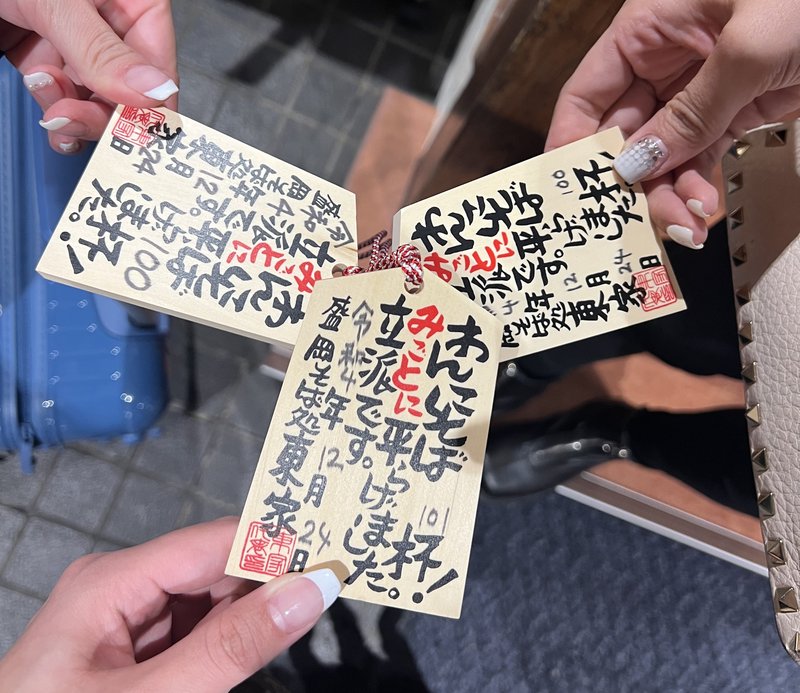 わんこそば 101杯!
みごとに平らげました。
立派です。
令和4年12月24日
盛岡そば処東家
わんこそば 100杯!
みごとに平らげました。
立派です。
令和4年12月24日
盛岡そば処東家
わんこそば 100杯!
みごとに平らげました。
立派です。
4年12月24日
岡そば処東家